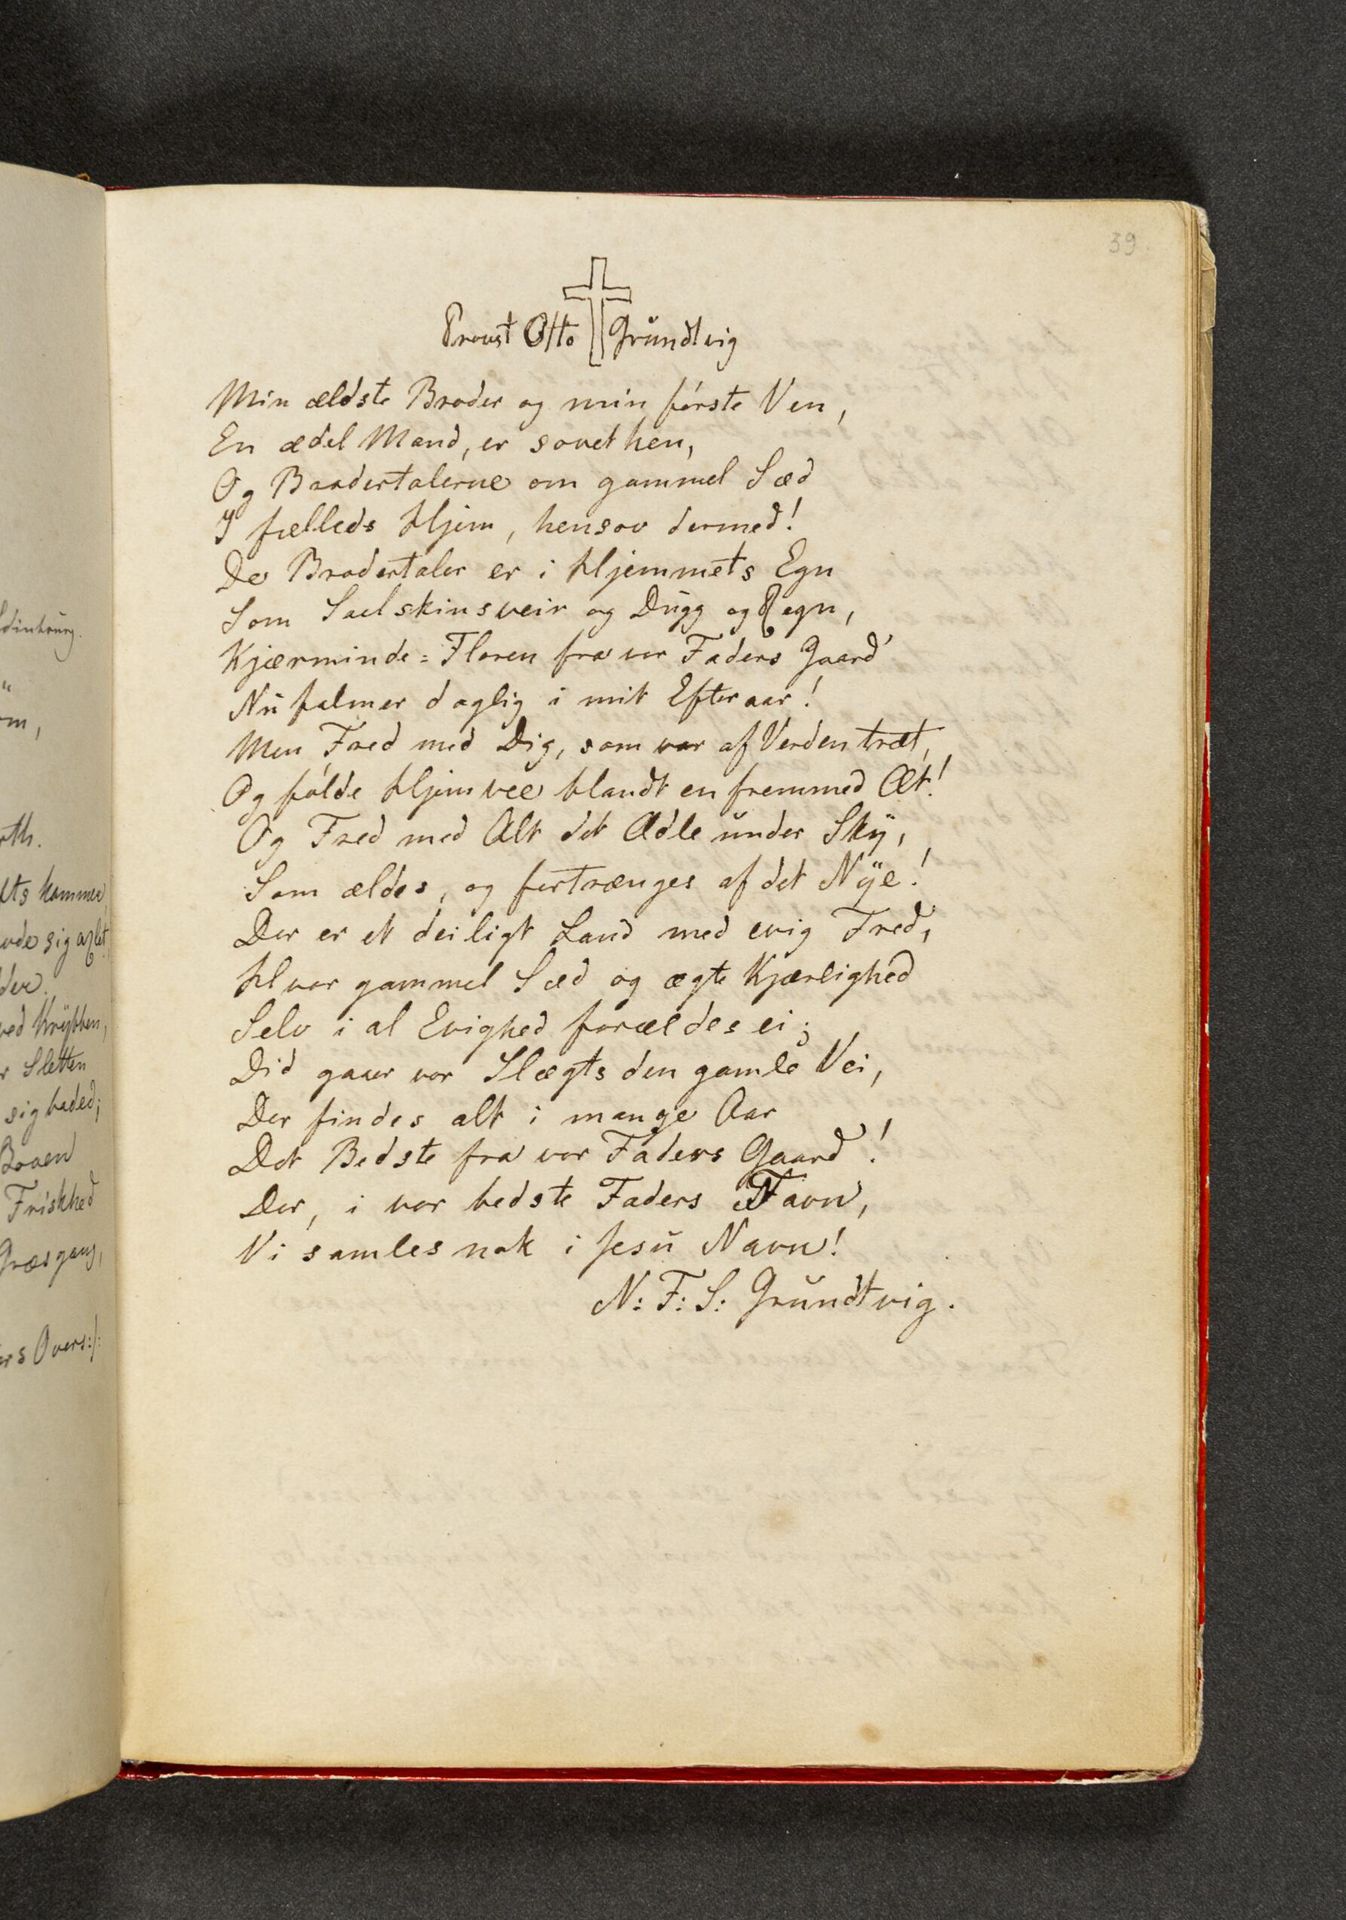 39.
Provst Otto Grundtvig
Min ældste Broder og min første Ven,
En ædel Mand, er sovet hen,
Og Brodertalerne om gammel Sæd
I fælleds Hjem, hensov dermed!
De Brodertaler er i Hjemmets Egn
Som Soelskinsveir og Dugg og Regn,
Kjærminde-Floren fra vor Faders Gaard
Nu falmer daglig i mit Efteraar!
Men Fred med Dig, som var af Verden træt,
Og følde Hjemvee blandt en fremmed Æt!
Og Fred med Alt det Ædle under Sky,
Som ældes, og fortrænges af det Nye!
Der er et deiligt Land med evig Fred,
Hvor gammel Sæd og ægte Kjærlighed
Selv i al Evighed forældes ei;
Did gaaer vor Slægts den gamle Vei,
Der findes alt i mange Aar
Det Bedste fra vor Faders Gaard!
Der, i vor bedste Faders Favn,
Vi samles nok i Jesu Navn!
N: F: S: Grundtvig.
rth.
ts kommer
der.
ved Krybben,
r Sletten
sig baded;
Friskhed
Græsgang,
rs Overs:/: